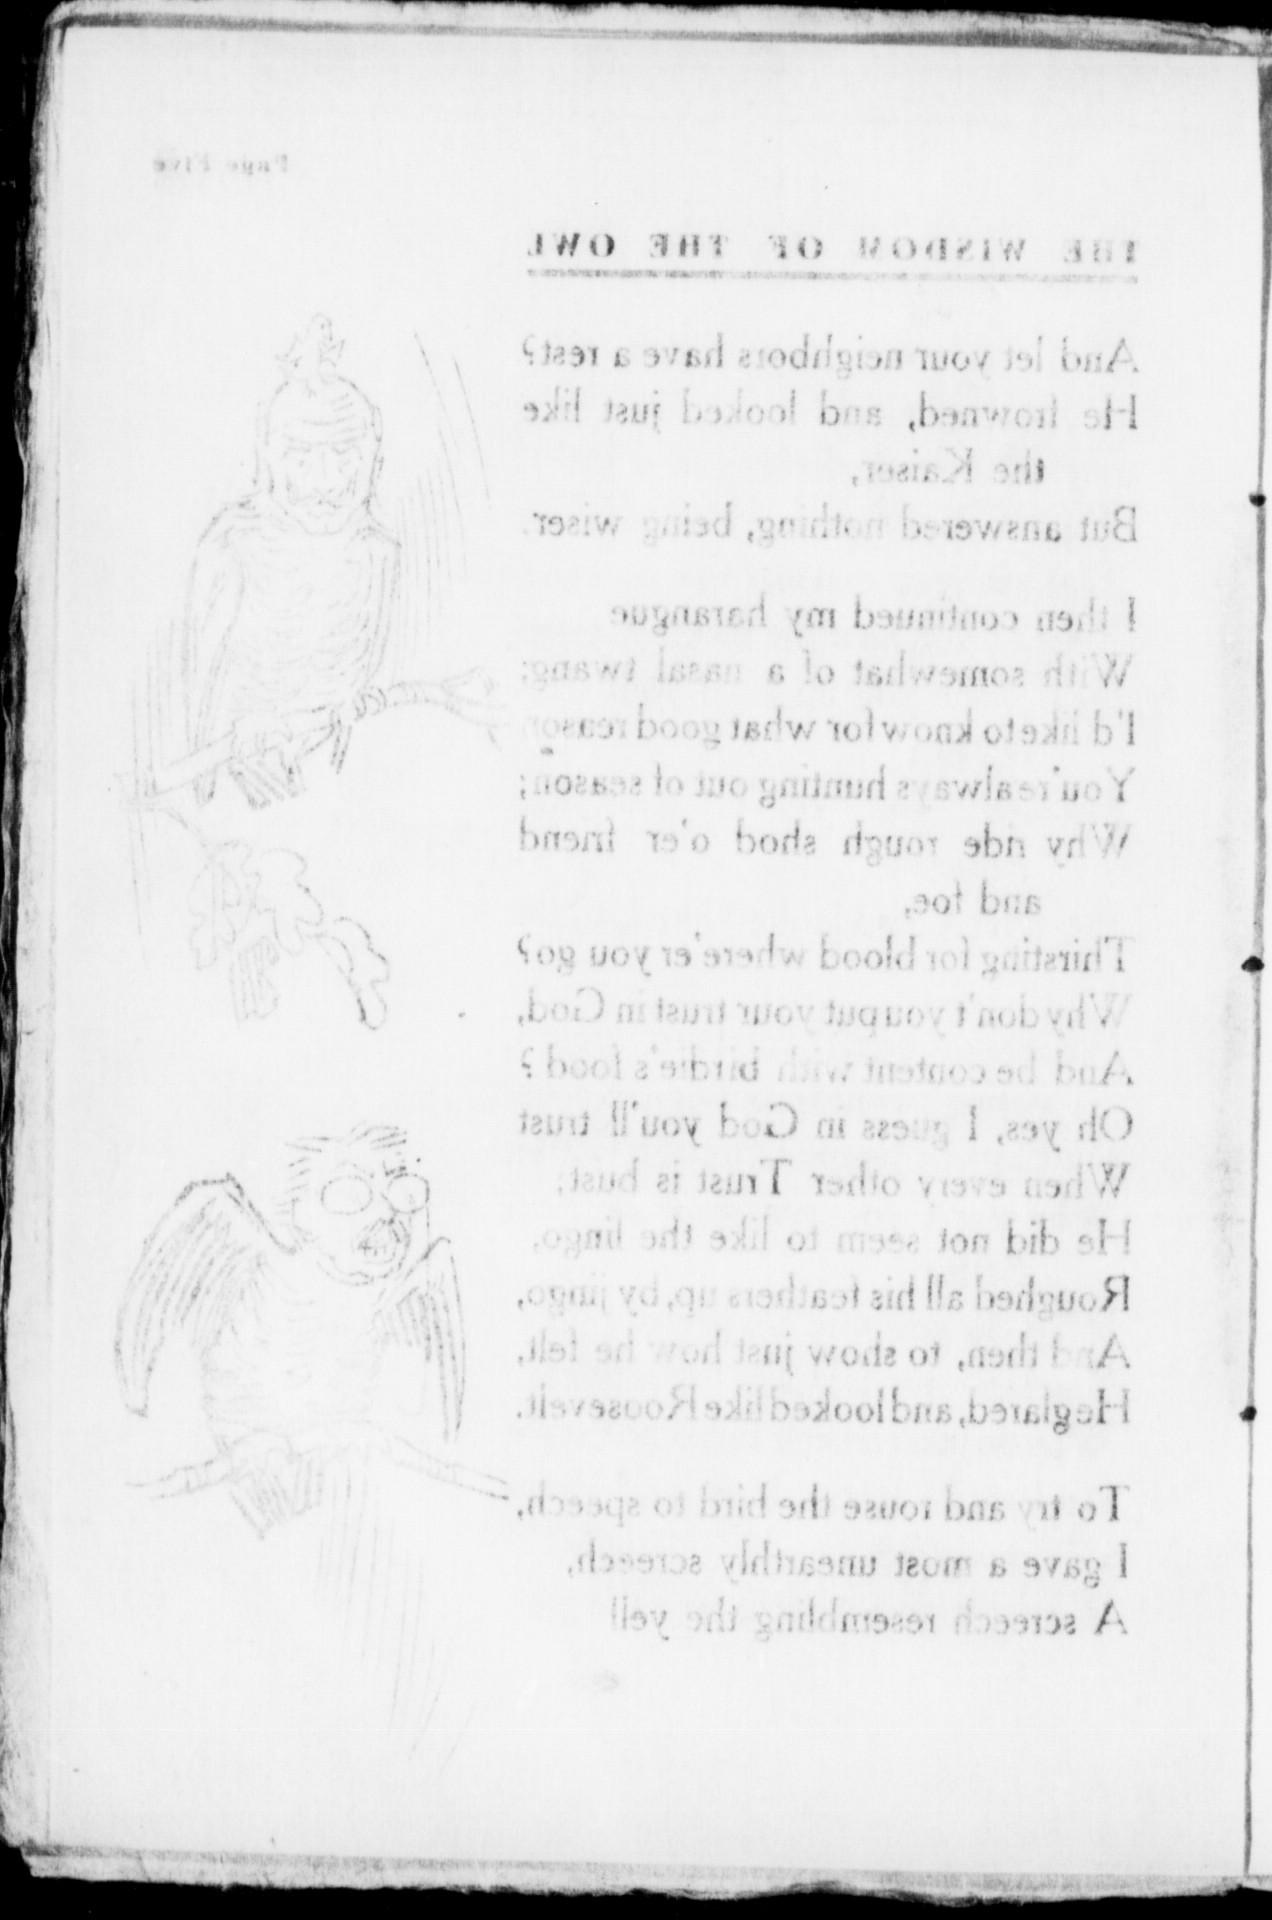 Page Five
THE WISDOM OF THE OWL
And let your neighbors have a rest?
He frowned, and looked just like
the Kaiser,
But answered nothing, being wiser.
I then continued my harangue
With somewhat of a nasal twang;
I'd like to know for what good reason
You're always hunting out of season;
Why ride rough shod o'er friend
and foe,
Thirsting for blood where'er you go?
Why don't you put your trust in God,
And be content with birdie's food?
Oh yes, I guess in God you'll trust
When every other Trust is bust;
He did not seem to like the lingo,
Roughed all his feathers up, by jingo,
And then, to show just how he felt,
He glared, and looked like Roosevelt.
To try and rouse the bird to speech,
I gave a most unearthly screech,
A screech resembling the yell